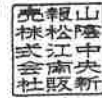 山陰中央新
報松江南販
売株式会社